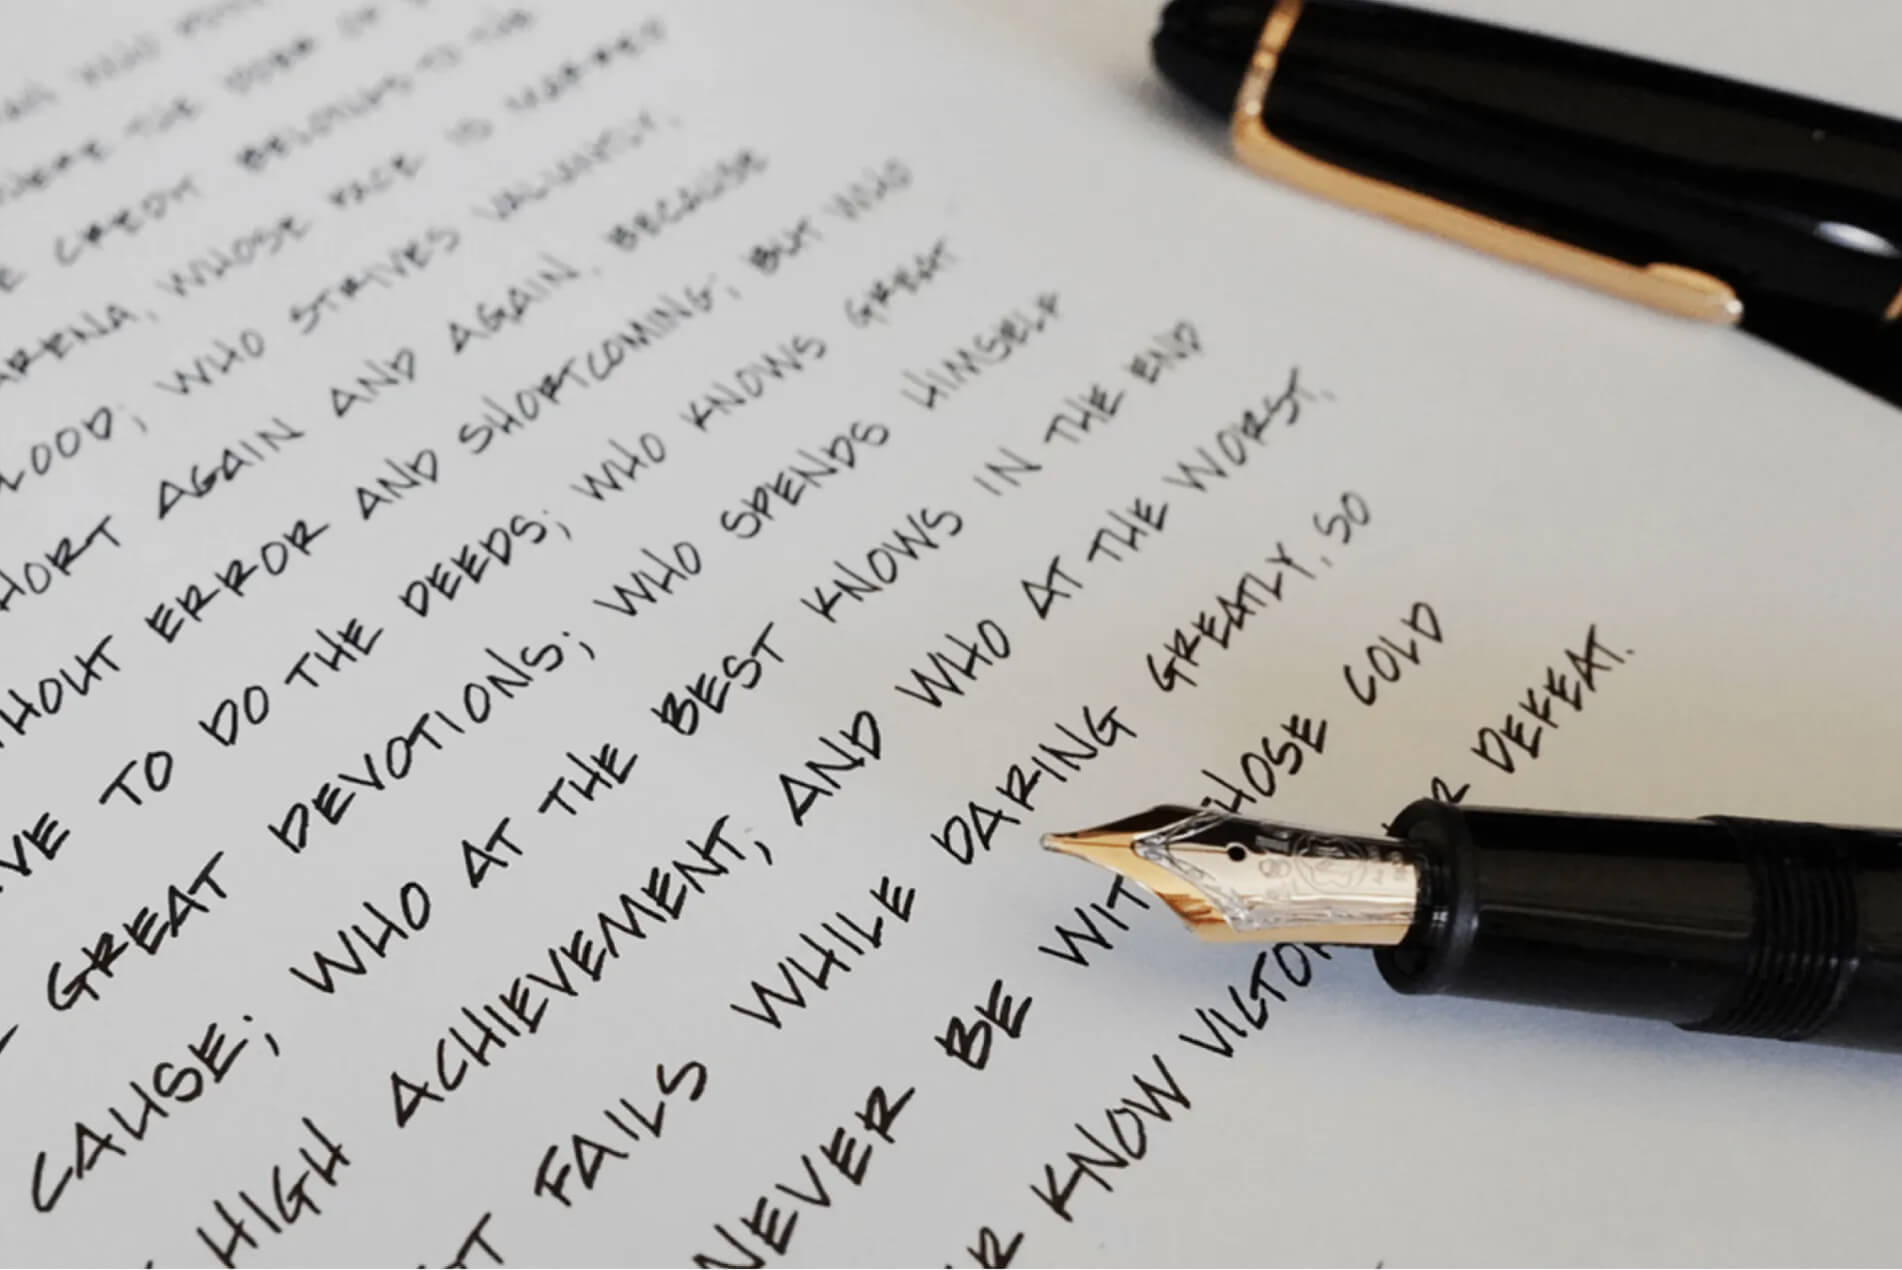 WHERE THE DOER OF
CREDIT BELONGS TO THE
ARENA, WHOSE FACE IS MARRED
LOOD; WHO STRIVES VALIANTLY,
HORT AGAIN AND AGAIN, BECAUSE
THOUT ERROR AND SHORTCOMING; BUT WHO
VE TO DO THE DEEDS; WHO KNOWS GREAT
GREAT DEVOTIONS; WHO SPENDS HIMSELF
CAUSE; WHO AT THE BEST KNOWS IN THE END
HIGH ACHIEVEMENT; AND WHO AT THE WORST,
FAILS WHILE DARING GREATLY, SO
NEVER BE WIT HOSE COLD
R KNOW VICTOR R DEFEAT.